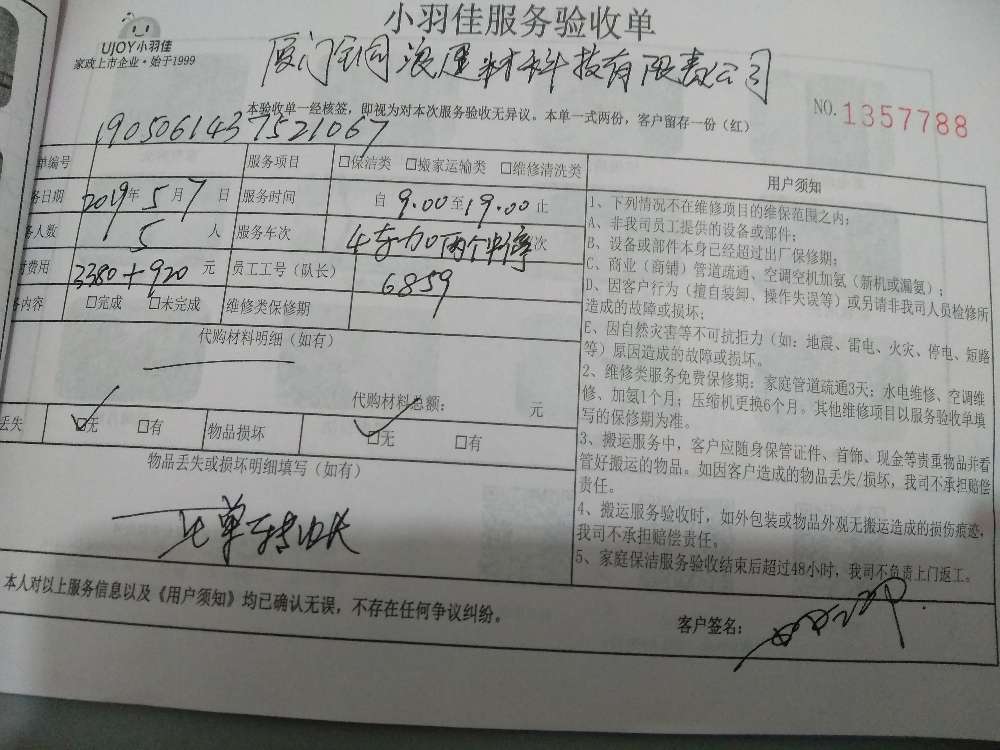 小羽佳服务验收单
UJOY小羽佳
家政上市企业·始于1999
材料科技有限责任公司
本验收单一经核签，即视为对本次服务验收无异议。本单一式两份，客户留存一份（红）
NO. 1357788
1905061437521067
单编号 服务项目 □保洁类 □搬家运输类 □维修清洗类
务日期 2019年5月7日 服务时间 自 9.00 至 19.00 止
人数 5 人 服务车次 次
费用 3380+920 元 员工工号（队长） 6859
内容 □完成 □未完成 维修类保修期
代购材料明细（如有）
代购材料总额： 元
丢失 □无 □有 物品损坏 □无 □有
物品丢失或损坏明细填写（如有）
本人对以上服务信息以及《用户须知》均已确认无误，不存在任何争议纠纷。
用户须知
1、下列情况不在维修项目的维保范围之内：
A、非我司员工提供的设备或部件；
B、设备或部件本身已经超过出厂保修期；
C、商业（商铺）管道疏通、空调空机加氨（新机或漏氨）；
D、因客户行为（擅自装卸、操作失误等）或另请非我司人员检修所
造成的故障或损坏；
E、因自然灾害等不可抗拒力（如：地震、雷电、火灾、停电、短路
等）原因造成的故障或损坏。
2、维修类服务免费保修期：家庭管道疏通3天；水电维修、空调维
修、加氨1个月；压缩机更换6个月。其他维修项目以服务验收单填
写的保修期为准。
3、搬运服务中，客户应随身保管证件、首饰、现金等贵重物品并看
管好搬运的物品。如因客户造成的物品丢失/损坏，我司不承担赔偿
责任。
4、搬运服务验收时，如外包装或物品外观无搬运造成的损伤痕迹，
我司不承担赔偿责任。
5、家庭保洁服务验收结束后超过48小时，我司不负责上门返工。
客户签名：